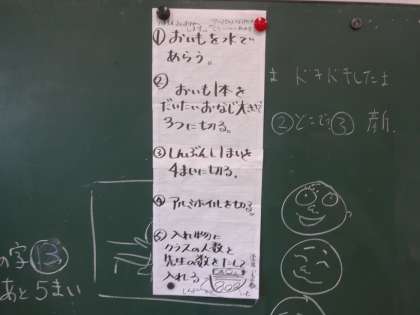 ①おいもを水で
あらう。
②
おいも1本を
だいたいおなじ大きさで
3つに切る。
③しんぶん1まいを
4まいに切る。
④アルミホイルを切る。
⑤入れ物に
クラスの人数と
先生の数をたして
入れる
ドキドキした
②どこで③
新.
の字⑬
あと5まい